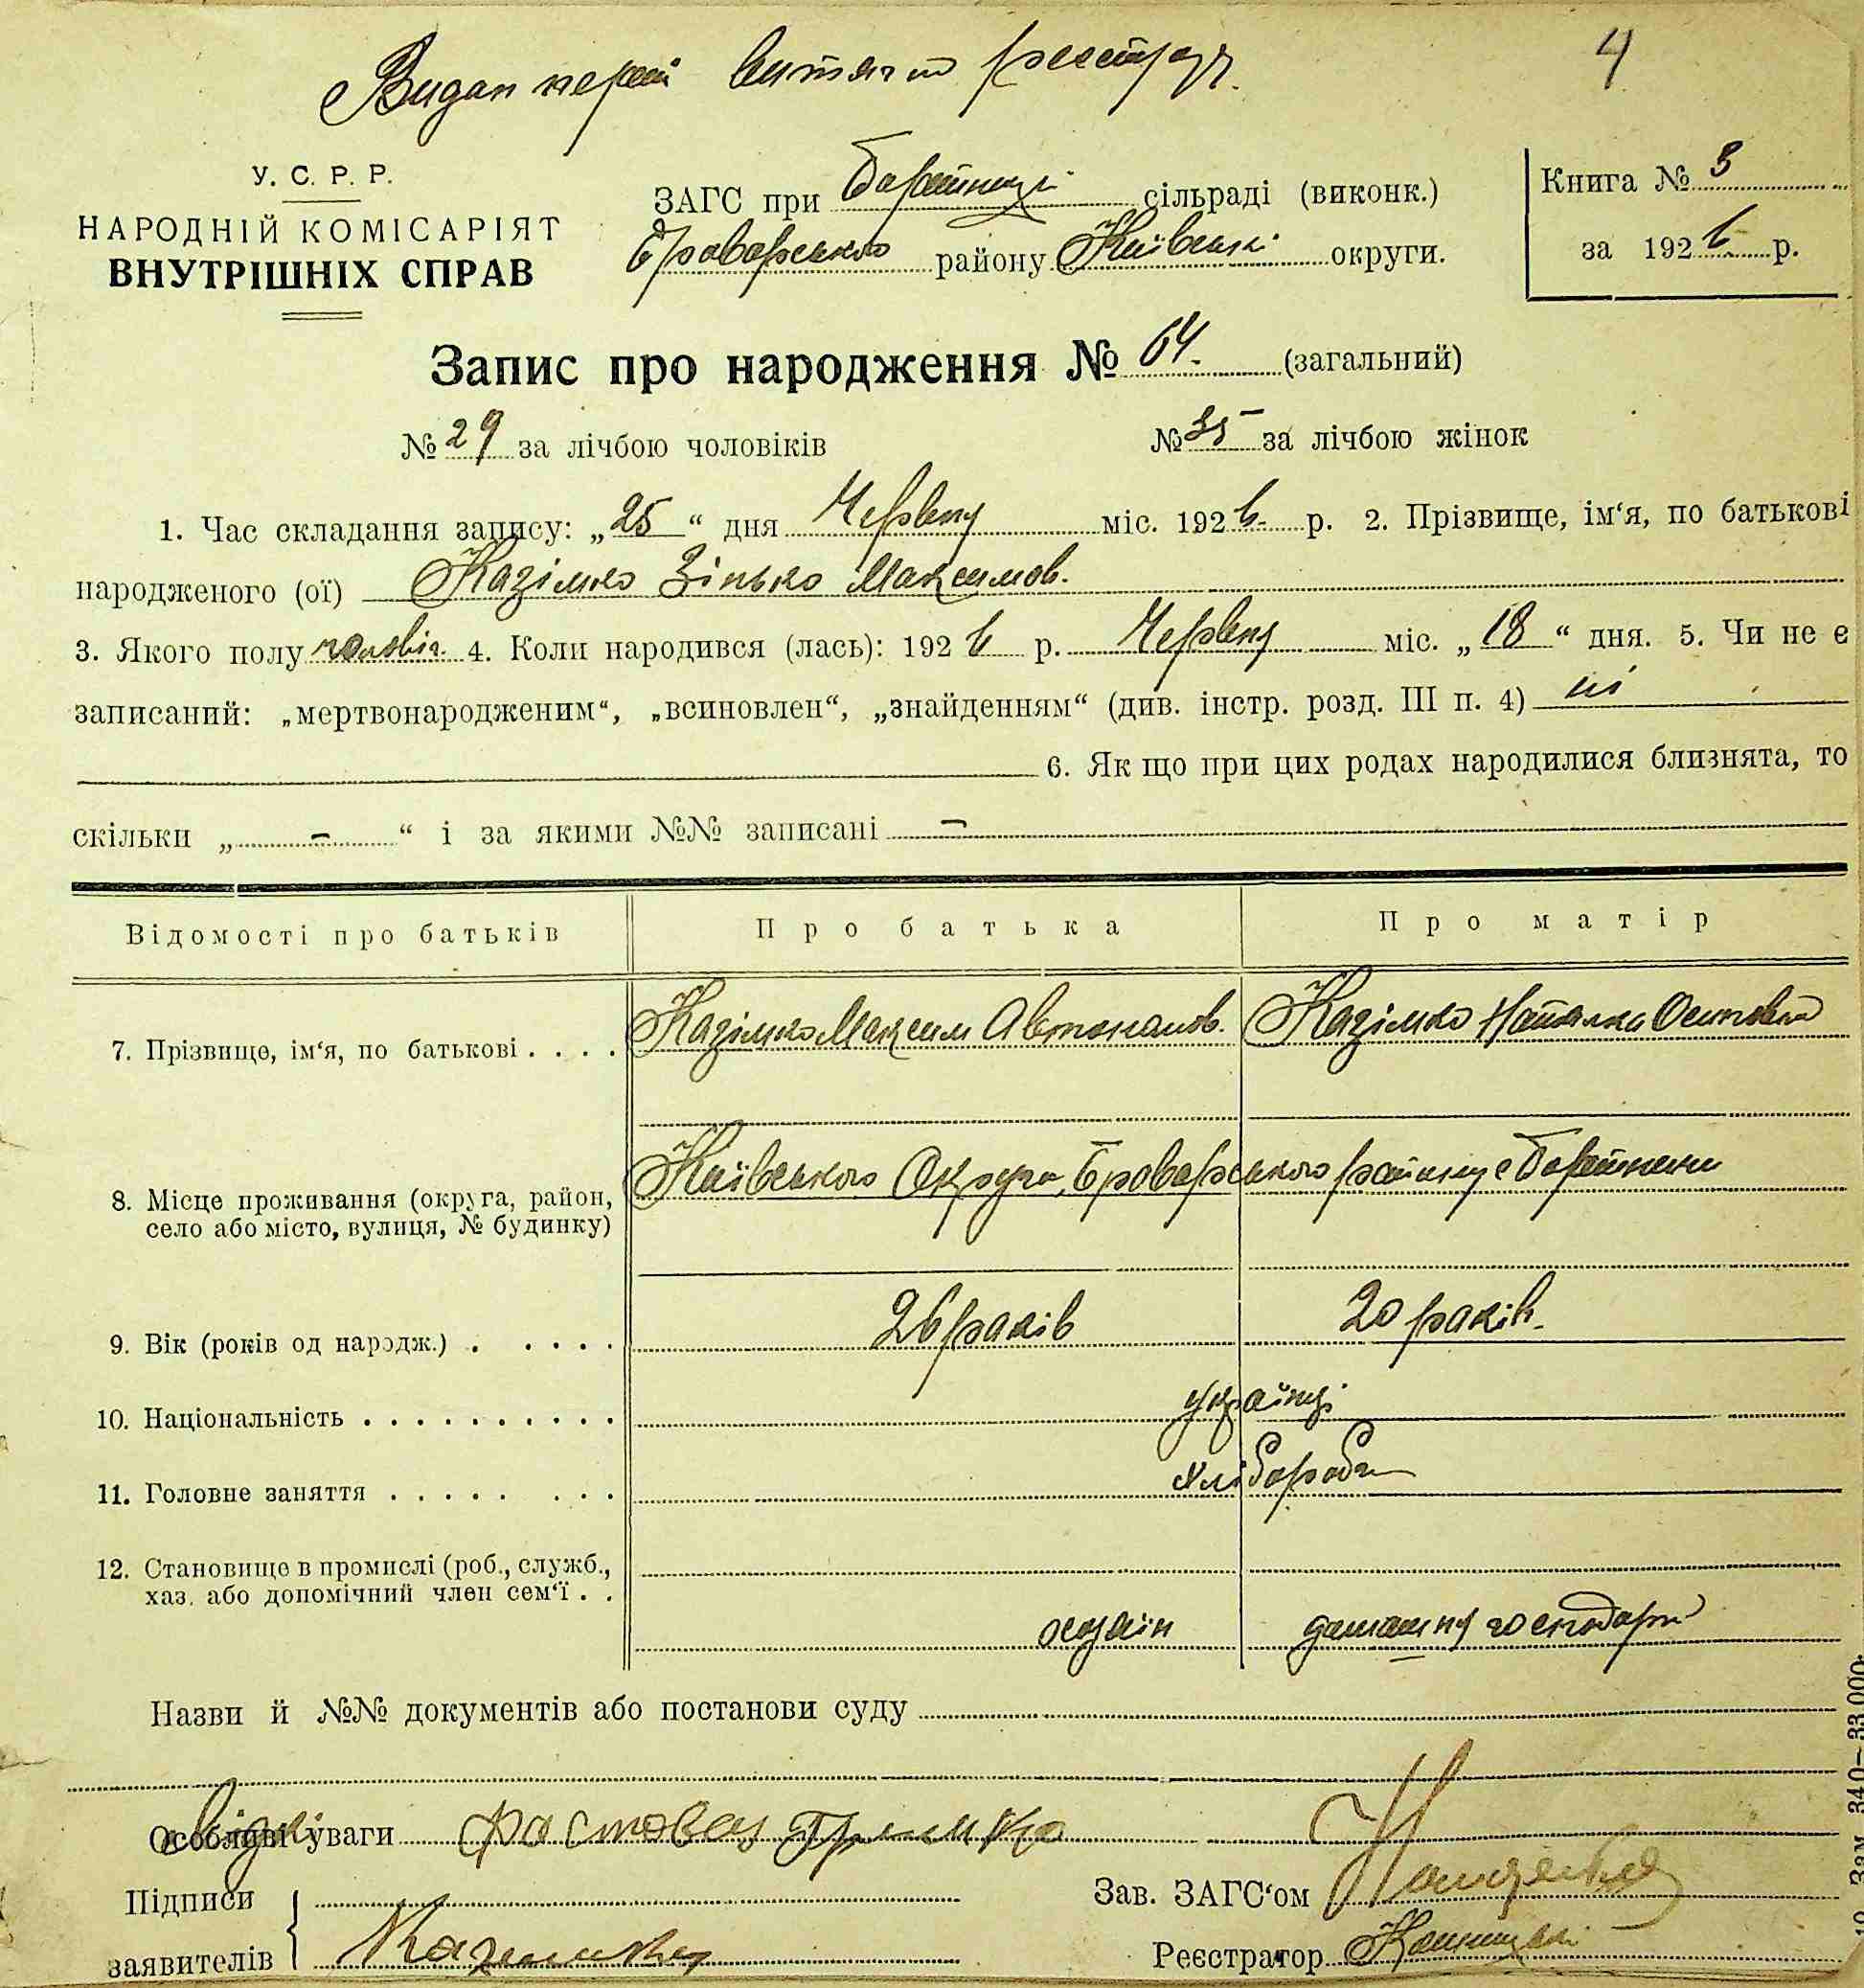 Видан перший витяг из реєстру.
4
У. С. Р. Р.
НАРОДНІЙ КОМІСАРІЯТ
ВНУТРІШНІХ СПРАВ
ЗАГС при сільраді (виконк.)
Броварського району Київської округи.
Книга № 3
за 1926 р.
Запис про народження № 64. (загальний)
№ 29 за лічбою чоловіків № 35 за лічбою жінок
1. Час складання запису: „25“ дня Червня міс. 1926 р. 2. Прізвище, ім‘я, по батькові
народженого (ої) Казімко Зінько Максимов.
3. Якого полу чоловіч. 4. Коли народився (лась): 1926 р. Червня міс. „18“ дня. 5. Чи не є
записаний: „мертвонародженим“, „всиновлен“, „знайденням“ (див. інстр. розд. III п. 4) ні
6. Як що при цих родах народилися близнята, то
скільки „ – “ і за якими №№ записані –
Відомості про батьків Про батька Про матір
7. Прізвище, ім‘я, по батькові . . . . Казімко Максим Автономов. Казімко Наталка
8. Місце проживання (округа, район, село або місто, вулиця, № будинку) Київського Округа, Броварського району с
9. Вік (років од народж.) . . . . . 26 років 20 років.
10. Національність . . . . . . . . . . українці
11. Головне заняття . . . . . . . . хлібороби
12. Становище в промислі (роб., служб., хаз. або допомічний член сем‘ї . . хазяін домашня господарк
Назви й №№ документів або постанови суду
Особливі уваги
Підписи
заявителів
Зав. ЗАГС‘ом
Реєстратор
Зам. 340—33.000.